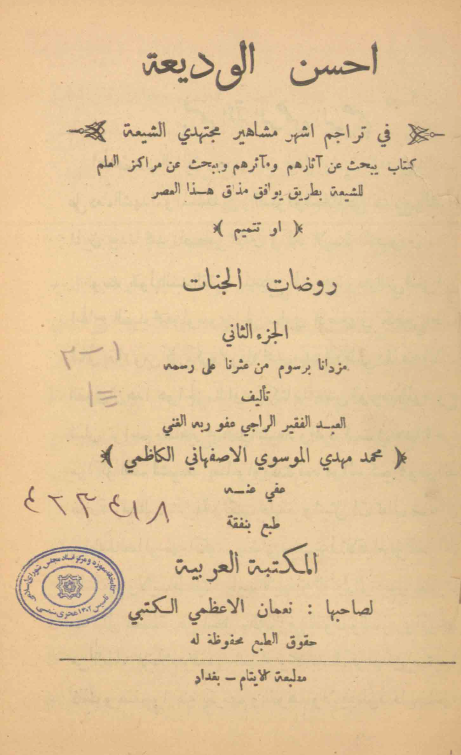 احسن الوديعة
في تراجم اشهر مشاهير مجتهدي الشيعة
كتاب يبحث عن آثارهم ومآثرهم ويبحث عن مراكز العلم
للشيعة بطريق يوافق مذاق هذا العصر
﴿ او تتميم ﴾
روضات الجنات
الجزء الثاني
مزدانا برسوم من عثرنا على رسمه
تأليف
العبد الفقير الراجي عفو ربه الغني
﴿ محمد مهدي الموسوي الاصفهاني الكاظمي ﴾
عفي عنه
طبع بنفقة
المكتبة العربية
لصاحبها : نعمان الاعظمي الكتبي
حقوق الطبع محفوظة له
مطبعة الايتام - بغداد